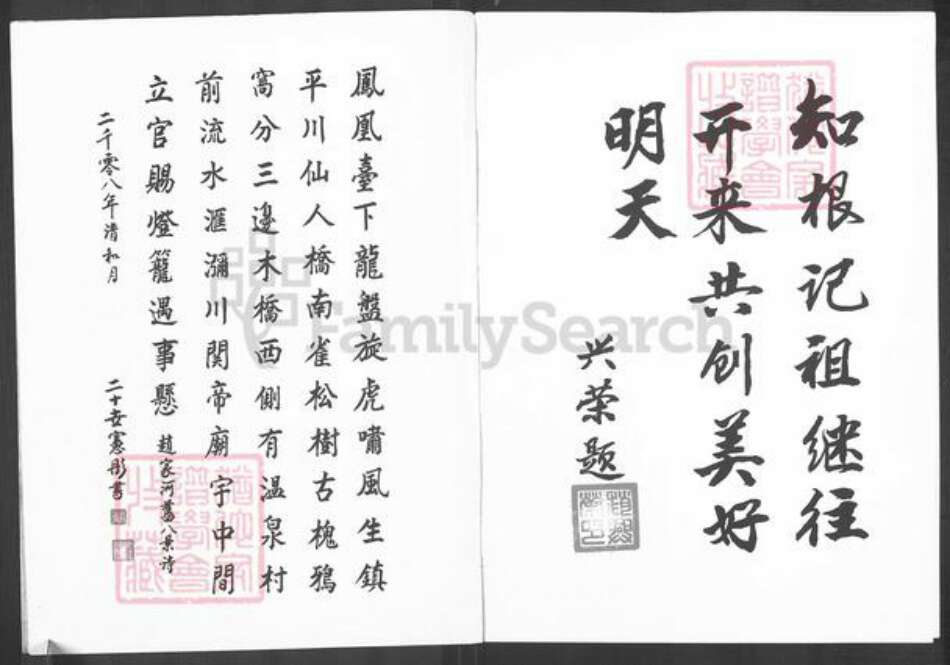 知根记祖继往
开来共创美好
明天
兴荣题
鳳凰臺下龍盤旋虎嘯風生鎮
平川仙人橋南雀松樹古槐鴉
窩分三邊木橋西側有温泉村
前流水滙瀰川関帝廟宇中間
立官賜燈籠遇事懸
趙家河舊八景詩
二千零八年清和月
二十世憲彤書
FamilySearch